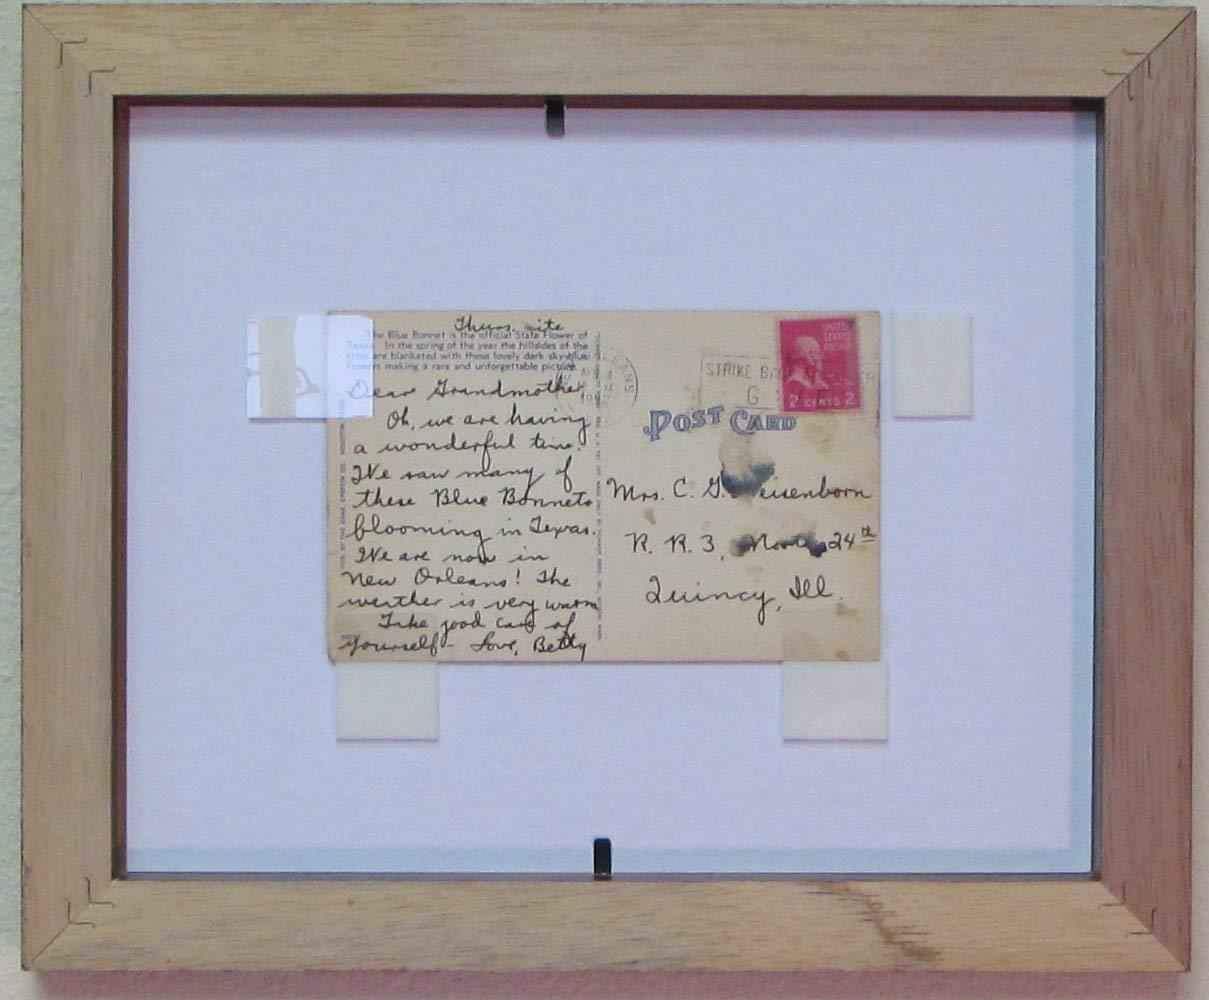 Thurs. nite
The Blue Bonnet is the official State Flower of
Texas. In the spring of the year the hillsides of the
state are blanketed with these lovely dark sky-blue
flowers making a rare and unforgettable picture.
Dear Grandmother,
Oh, we are having
a wonderful time.
We saw many of
these Blue Bonnets
blooming in Texas.
We are now in
New Orleans! The
weather is very warm
Take good care of
yourself - Love, Betty
STRIKE
G
UNITED
STATES
POSTAGE
2 CENTS 2
POST CARD
Mrs. C. G.
R. R. 3, North 24th
Quincy, Ill.